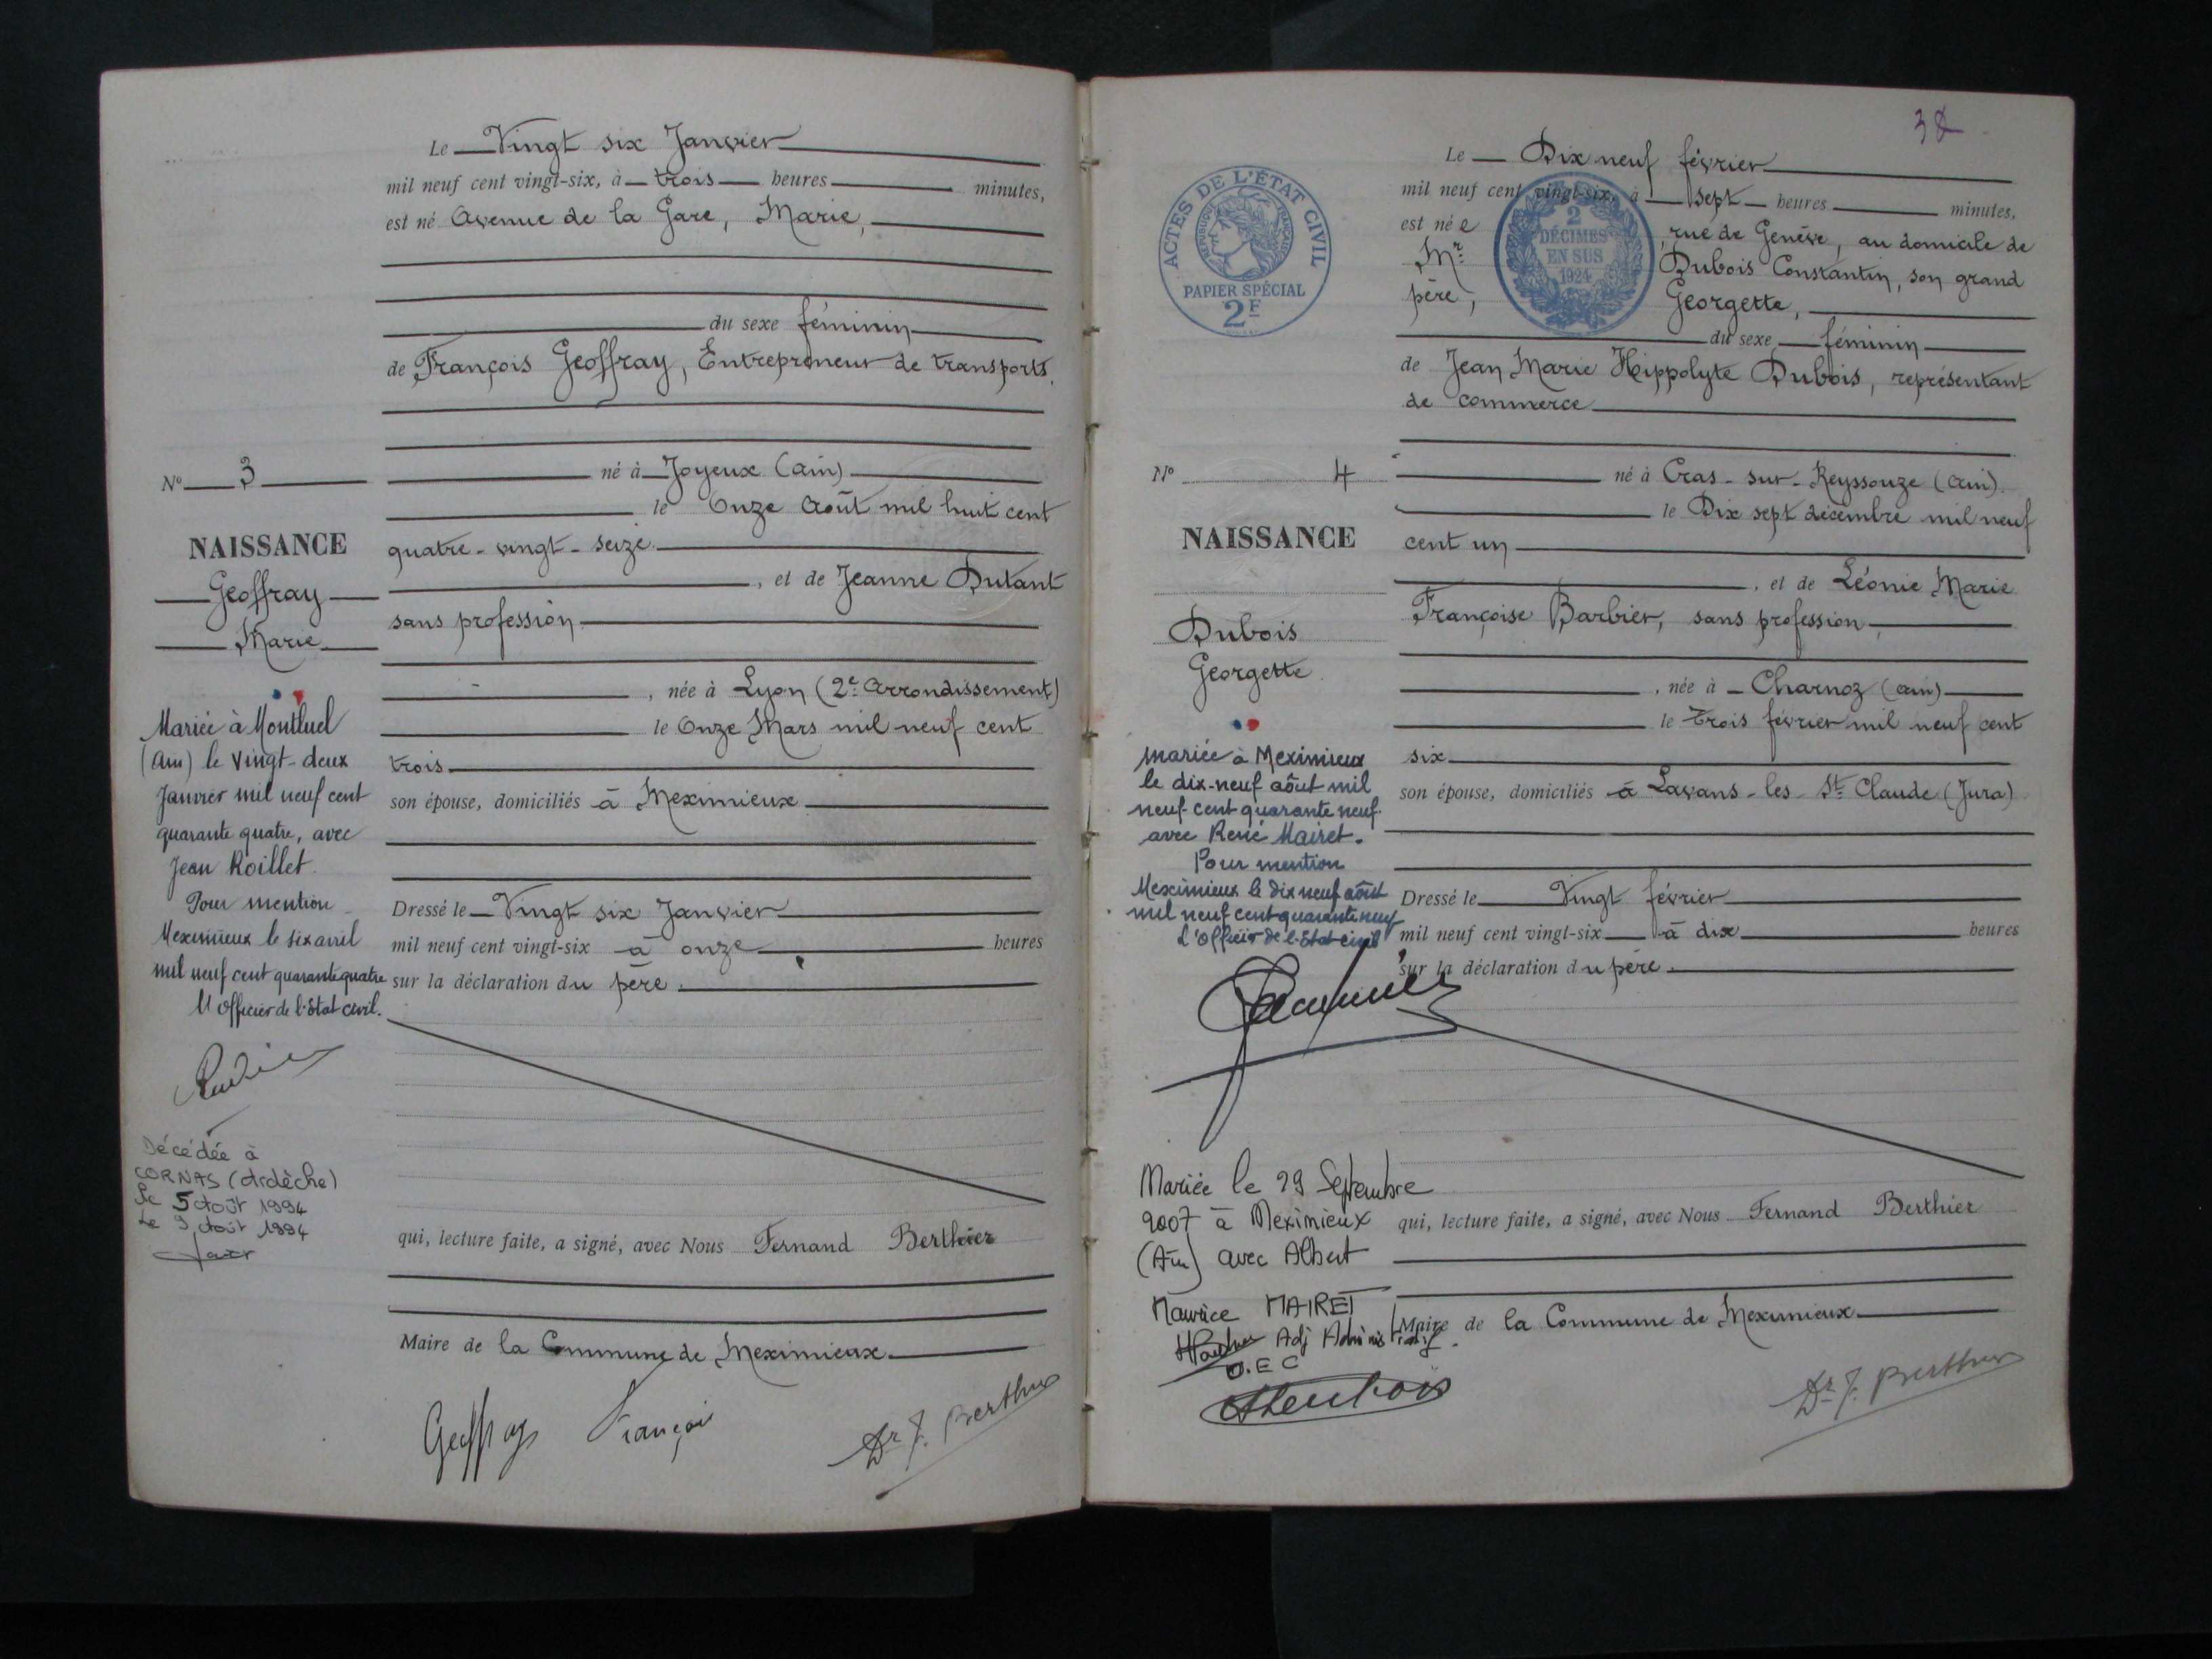 Le Vingt six Janvier
mil neuf cent vingt-six, à trois heures minutes,
est né Avenue de la Gare, Marie,
du sexe féminin
de François Geoffray, Entrepreneur de transports.
né à Joyeux (Ain)
le Onze Août mil huit cent
quatre-vingt-seize
, et de Jeanne Dutant
sans profession
, née à Lyon (2e Arrondissement)
le Onze Mars mil neuf cent
trois
son épouse, domiciliés à Meximieux
Dressé le Vingt six Janvier
mil neuf cent vingt-six à onze heures
sur la déclaration du père.
qui, lecture faite, a signé, avec Nous Fernand Berthier
Maire de la Commune de Meximieux
Geoffray François Dr F. Berthier
No 3
NAISSANCE
Geoffray
Marie
Mariée à Montluel
(Ain) le vingt-deux
Janvier mil neuf cent
quarante quatre, avec
Jean Roillet.
Pour mention
Meximieux le six avril
mil neuf cent quarante quatre
L'officier de l'Etat civil.
Décédée à
CORNAS (Ardèche)
Le 5 Août 1994
Le 9 Août 1994
38
ACTES DE L'ÉTAT CIVIL
RÉPUBLIQUE FRANÇAISE
PAPIER SPÉCIAL
2F
2
DÉCIMES
EN SUS
1924
Le Dix neuf février
mil neuf cent vingt-six, à sept heures minutes,
est née rue de Genève, au domicile de
Mr Dubois Constantin, son grand
père, Georgette,
du sexe féminin
de Jean Marie Hippolyte Dubois, représentant
de commerce
né à Cras-sur-Reyssouze (Ain).
le Dix sept décembre mil neuf
cent un
, et de Léonie Marie
Françoise Barbier, sans profession,
, née à Charnoz (Ain)
le trois février mil neuf cent
six
son épouse, domiciliés à Lavans-les-St Claude (Jura)
Dressé le Vingt février
mil neuf cent vingt-six à dix heures
sur la déclaration du père.
qui, lecture faite, a signé, avec Nous Fernand Berthier
Maire de la Commune de Meximieux
Dr F. Berthier
No 4
NAISSANCE
Dubois
Georgette
mariée à Meximieux
le dix-neuf août mil
neuf cent quarante neuf
avec René Mairet.
Pour mention
Meximieux le dix neuf août
mil neuf cent quarante neuf
L'officier de l'Etat civil
Mariée le 29 Septembre
2007 à Meximieux
(Ain) avec Albert
Maurice MAIRET
Adj Administratif.
O.E C